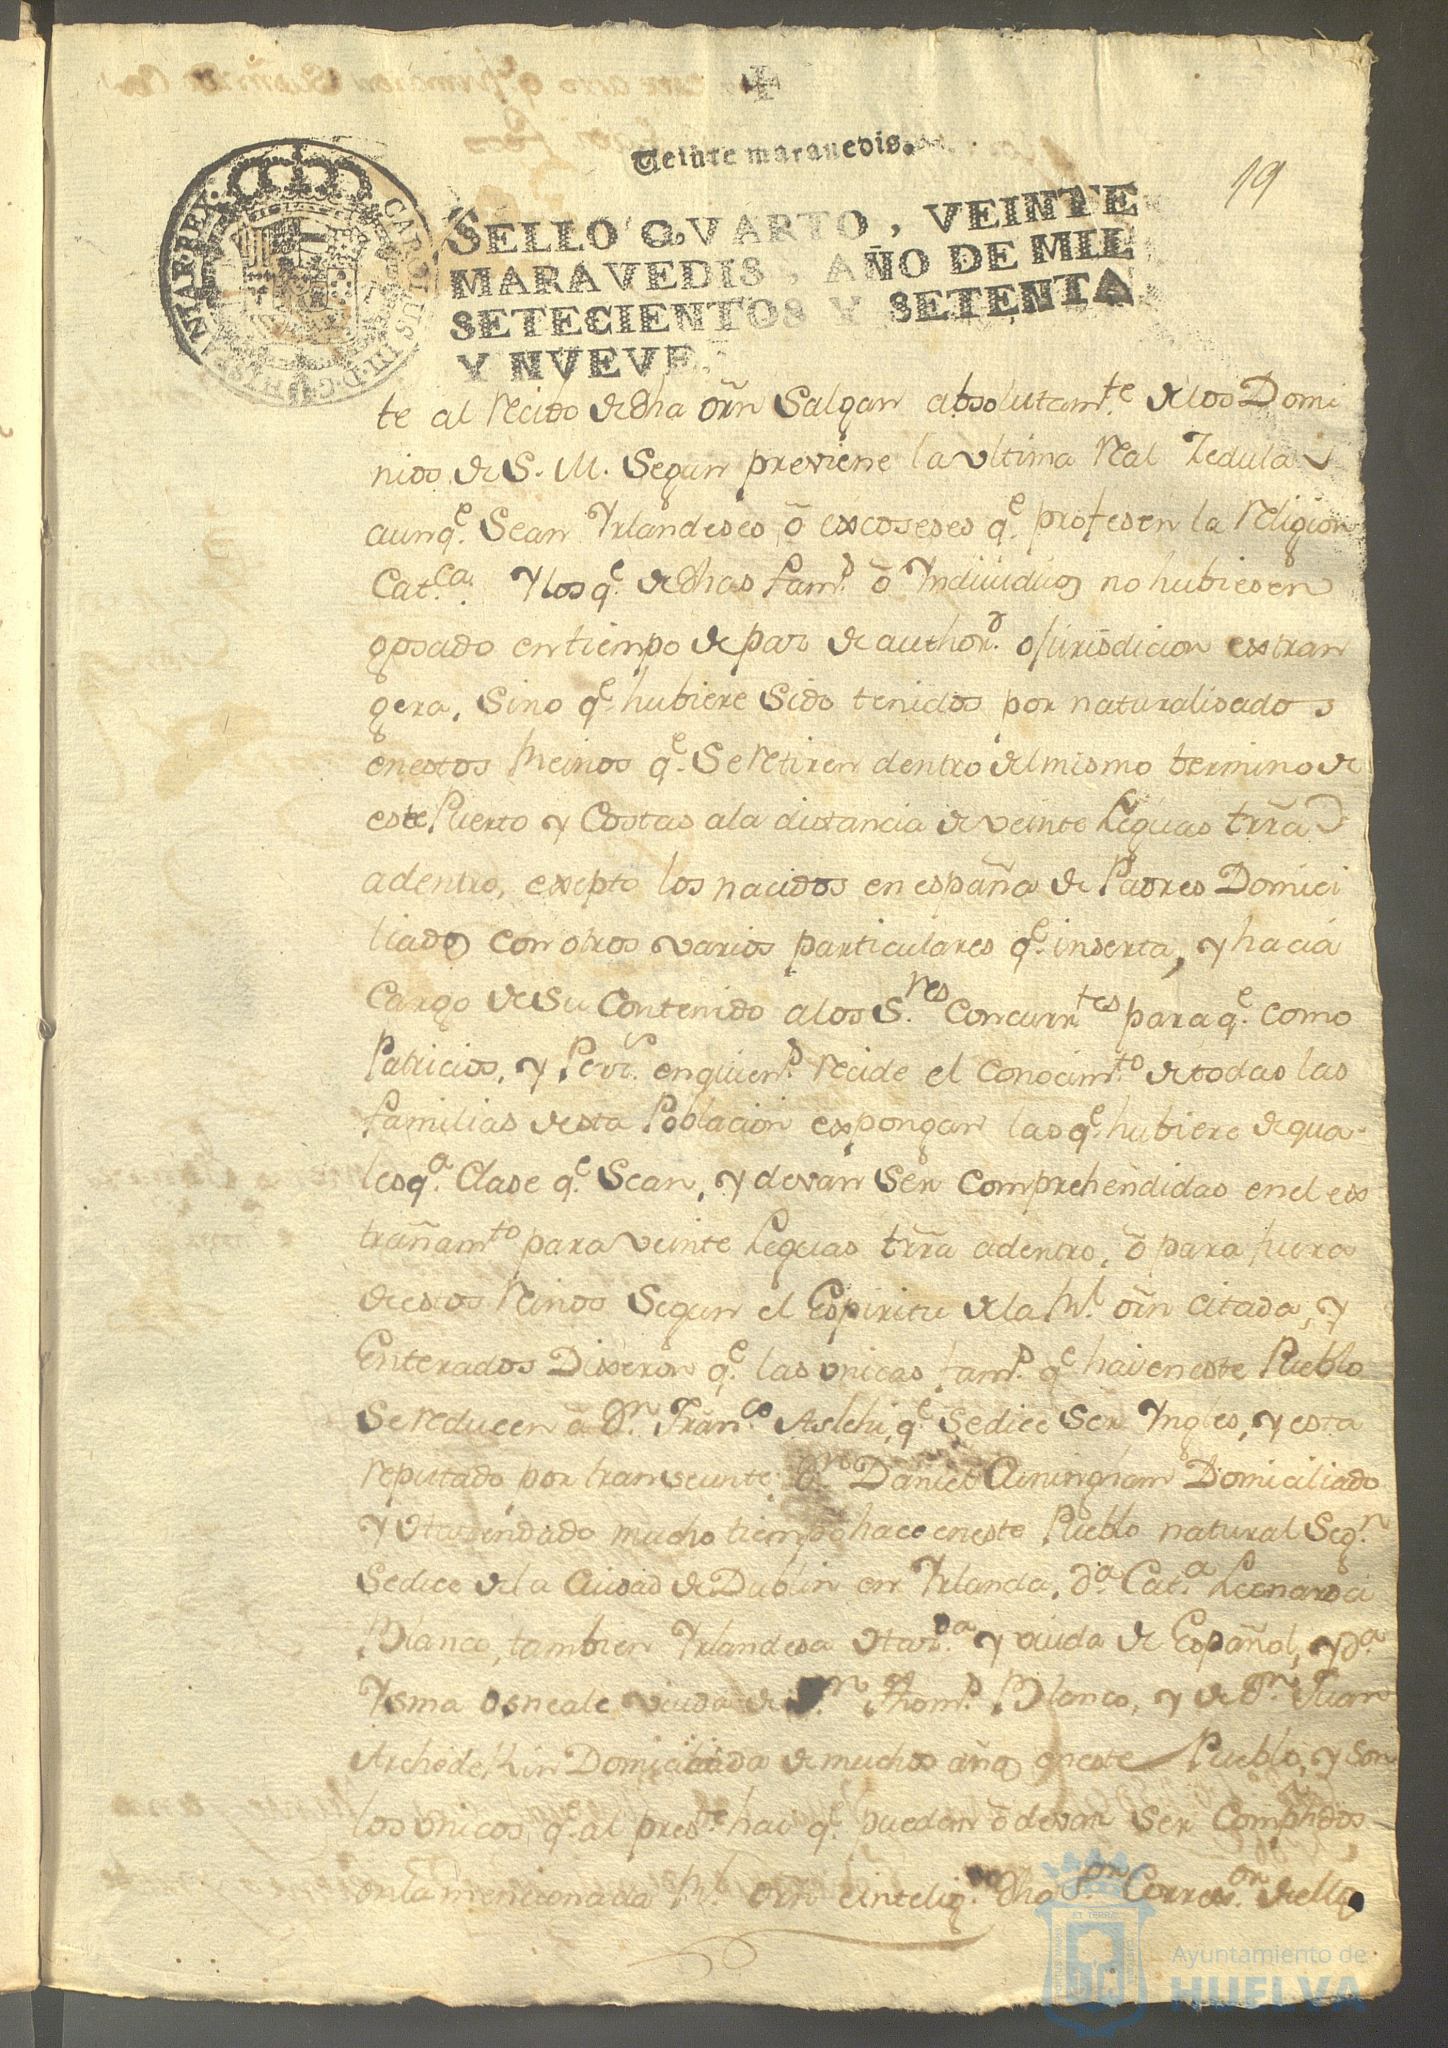 Veinte maravedis.
19
CAROLUS III D.G. HISPANIAR REX
SELLO QVARTO, VEINTE
MARAVEDIS, AÑO DE MIL
SETECIENTOS Y SETENTA
Y NVEVE.
te al recido de dha orñ Salgan absolutamte. de los Domi
nios de S. M. Segun previene la vltima Real Zedula
aunqe. Sean Yrlandeses, ó excoseses qe. profesen la religion
Catca. Y los qe. de dhas fams. ó Yndividuos no hubiesen
gosado en tiempo de paz de authord. o jurisdicion extran
gera, Sino qe. hubiere Sido tenidos por naturalisados
en estos Reinos qe. Se retiren dentro del mismo termino de
este Puerto y Costas a la distancia de veinte Leguas trrã
adentro, exepto los nacidos en españa de Padres Domici
liados con otros varios particulares qe. inserta, y hacia
Cargo de Su Contenido a los S.res Concurrtes para qe. como
Patricios, y en quiens. recide el Conocimto. de todas las
familias desta Poblacion expongan las qe. hubiere de qua-
lesqa. Clase qe. Sean, y devan Ser Comprehendidas en el ex
trañamto para veinte Leguas trrã adentro, ó para fuera
de estos Reinos Segun el Espiritu de la Rl. orñ citada, y
Enterados Dixeron qe. las vnicas fams. qe. hai en este Pueblo
Se reducen á Dn. Franco. qe. Se dice Ser Yngles, y esta
reputado por transeunte Dn. Daniel Domiciliado
y mucho tiempo hace en este Pueblo natural Segn.
Se dice de la Ciudad de Dublin en Yrlanda, Da. Cata.
Blanco, tambien Yrlandesa y viuda de Español, y Da.
viuda de Dn. Thoms. Blanco, y de Dn. Juan
Domiciliada de muchos años en este Pueblo, y Son
los vnicos, qe. al preste hai qe. puedan ó devan Ser Compñdidos
en la mencionada Rl. orñ dho Sor. Correxor. de ello
Ayuntamiento de
HUELVA